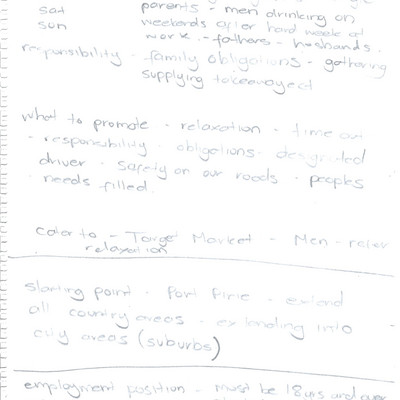 sat parents - men drinking on
sun weekends after hard week at
work. - fathers - husbands.
responsibility - family obligations - gathering
supplying
what to promote - relaxation - time out
- responsibility. obligations. designated
driver - safety on our roads - peoples
needs filled.
cater to - Target Market - Men - cater
relaxation
starting point - Port Pirie - extend
all country areas - extending into
city areas (suburbs)
employment position - must be 18yrs and over